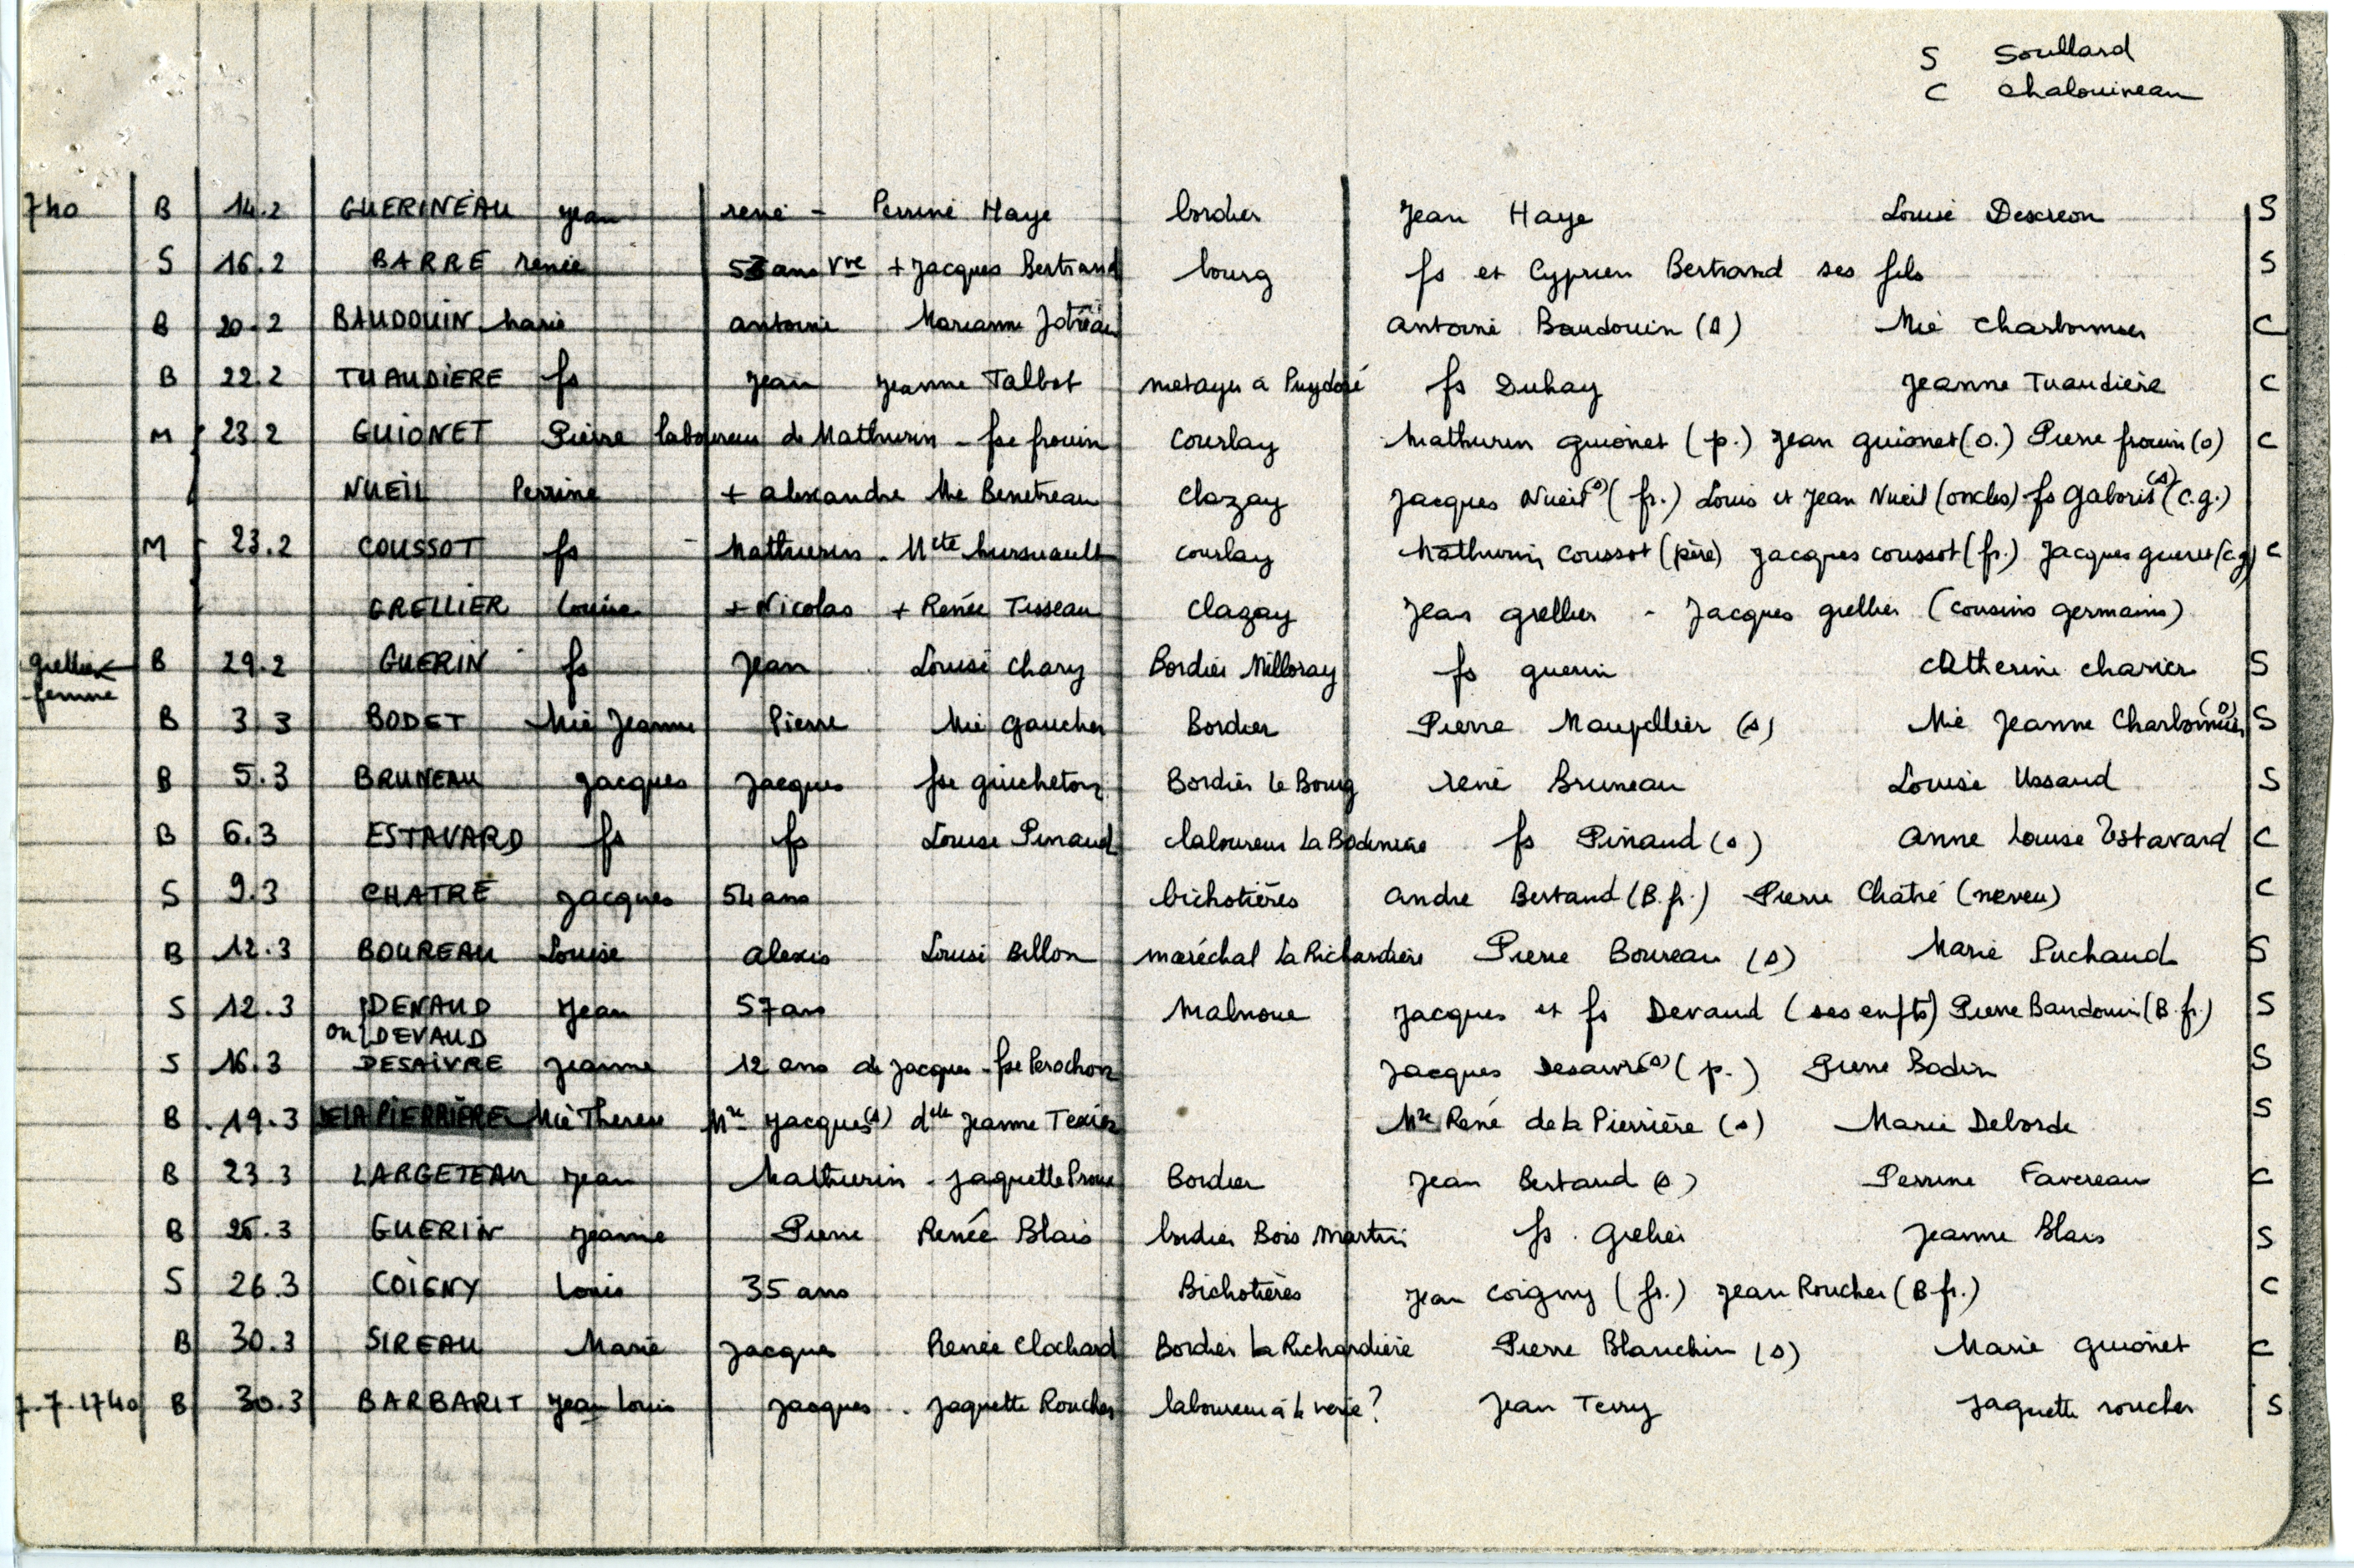 S Soullard
C Chalouineau
740 B 14.2 GUERINEAU Jean rené - Perrine Haye bordier Jean Haye Louise Descreon S
S 16.2 BARRE renée ans Vve + Jacques Bertrand bourg fs et Cyprien Bertrand ses fils S
B 20.2 BAUDOUIN Marie antoine Marianne antoine Baudouin (s) Mie Charbonnier C
B 22.2 TUAUDIERE fs Jean Jeanne Talbot metayer a Puydoré fs Duhay Jeanne Tuaudière C
M 23.2 GUIONET Pierre laboureur de Mathurin - fse frouin Courlay Mathurin guionet (p.) Jean guionet (o.) Pierre frouin (o) C
NUEIL Perrine + alexandre Mie Benetreau Clazay Jacques Nueil (s) (fr.) Louis et Jean Nueil (oncles) fs Gaboris (s) (c.g.)
M 23.2 COUSSOT fs Mathurin - Mete courlay Mathurin Coussot (père) Jacques coussot (fr.) Jacques gueret (c.g) C
GRELLIER Louise + Nicolas + Renée Tisseau Clazay Jean grellier - Jacques grellier (cousins germains)
grellier femme B 29.2 GUERIN fs Jean Louise Chary Bordier Milloray fs guerin Catherine charier S
B 3.3 BODET Mie Jeanne Pierre Mie Gaucher Bordier Pierre Maupellier (s) Mie Jeanne Charbonnier (s) S
B 5.3 BRUNEAU Jacques Jacques fse guicheton Bordier le Bourg rené Bruneau Louise Ussaud S
B 6.3 ESTAVARD fs fs Louise Pinaud laboureur La Bodinière fs Pinaud (s) Anne Louise Estavard C
S 9.3 CHATRE Jacques 54 ans bichotières Andre Bertaud (B.fr.) Pierre Châtré (neveu) C
B 12.3 BOUREAU Louise alexis Louise Billon maréchal la Richardière Pierre Boureau (s) Marie Puchaud S
S 12.3 DENAUD ou DEVAUD Jean 57 ans Malnoue Jacques et fs Devaud (ses enfts) Pierre Baudouin (B.fr.) S
S 16.3 DESAIVRE Jeanne 12 ans de Jacques - fse Perochon Jacques Desaivre (s) (p.) Pierre Bodin S
B 19.3 DE LA PIERRIERE Mie Therese Mre Jacques (s) delle Jeanne Texier Mre René de la Pierrière (s) Marie Deborde S
B 23.3 LARGETEAU Jean Mathurin - Jaquette Proux Bordier Jean Bertaud (s) Perrine Favereau C
B 25.3 GUERIN Jeanne Pierre Renée Blais bordier Bois Martin fs. Grelier Jeanne Blais S
S 26.3 COIGNY Louis 35 ans Bichotières Jean Coigny (fr.) Jean Roucher (B.fr.) C
B 30.3 SIREAU Marie Jacques Renée Clochard Bordier La Richardière Pierre Blanchin (s) Marie guionet C
7.7.1740 B 30.3 BARBARIT Jean Louis Jacques - Jaquette Roucher laboureur à la verie? Jean Terry Jaquette roucher S